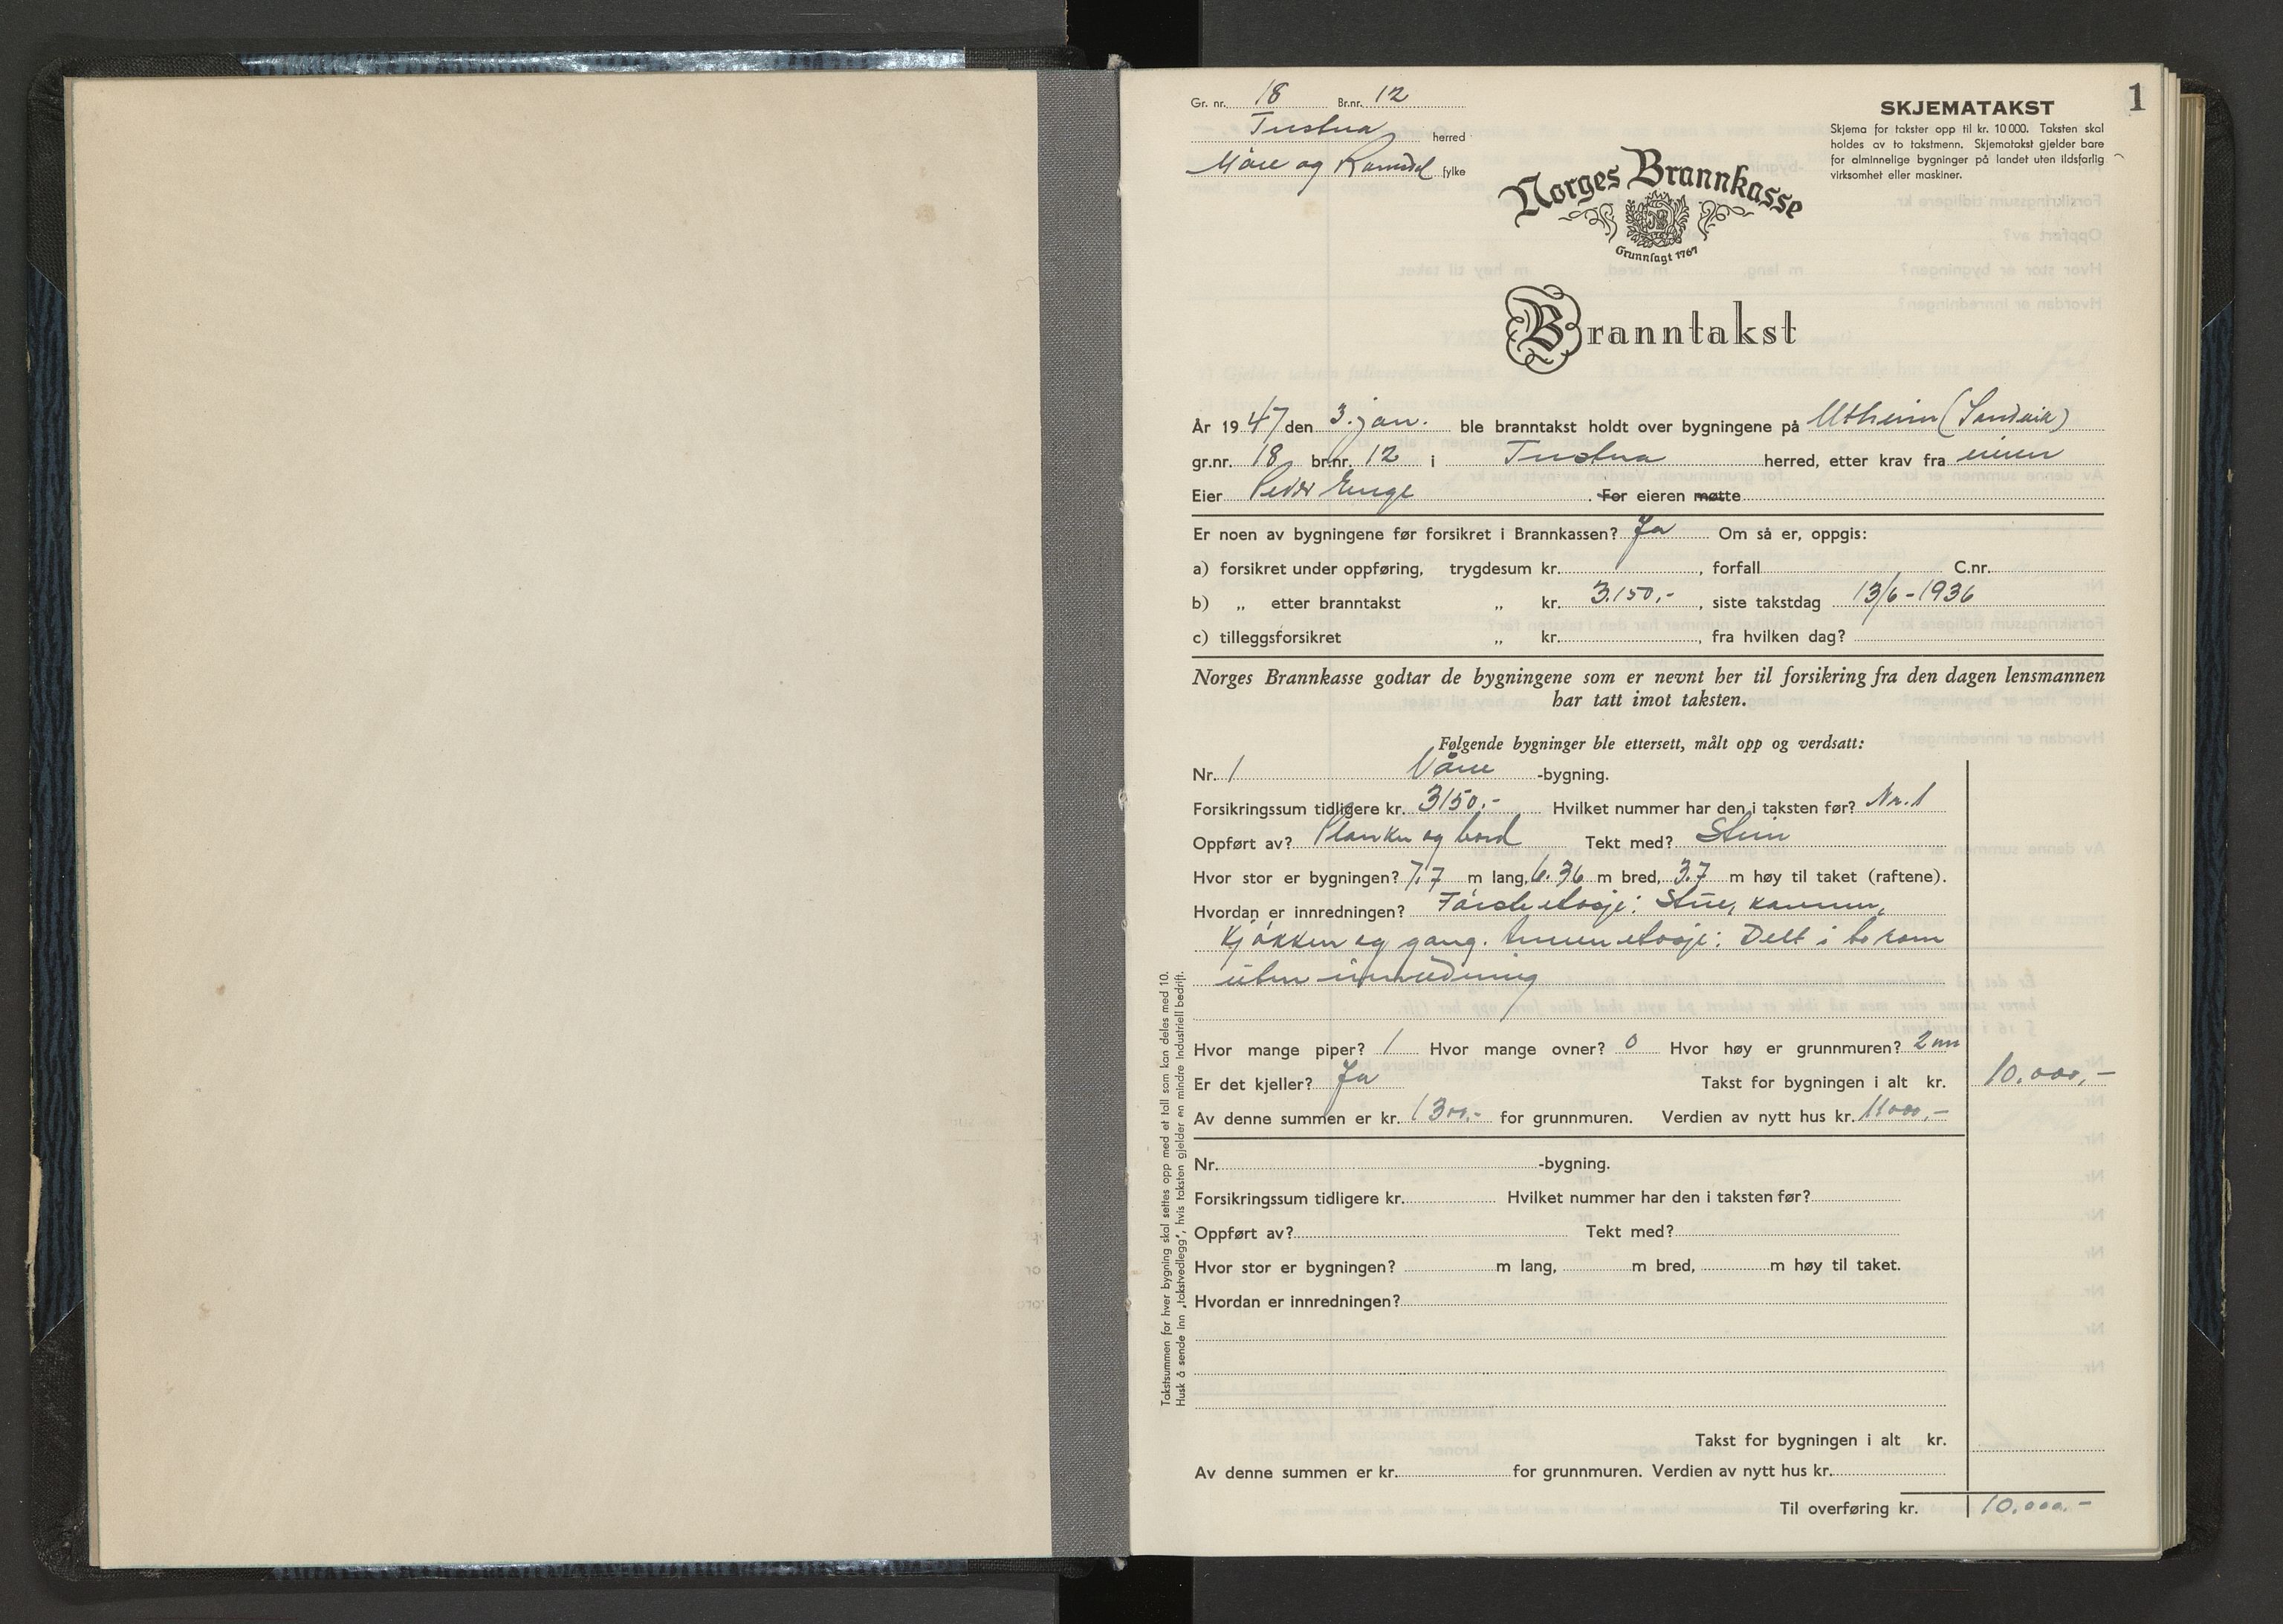 1
Gr. nr. 18 Br.nr. 12
Tustna herred
Möre og Romsdal fylke
SKJEMATAKST
Skjema for takster opp til kr. 10 000. Taksten skal
holdes av to takstmenn. Skjematakst gjelder bare
for alminnelige bygninger på landet uten ildsfarlig
virksomhet eller maskiner.
Norges Brannkasse
Grunnlagt 1767
Branntakst
År 1947 den 3. jan. ble branntakst holdt over bygningene på Utheim (Sandvik)
gr.nr. 18 br.nr. 12 i Tustna herred, etter krav fra eieren
Eier Peder Enge . For eieren møtte
Er noen av bygningene før forsikret i Brannkassen? Ja Om så er, oppgis:
a) forsikret under oppføring, trygdesum kr. , forfall C.nr.
b) „ etter branntakst „ kr. 3.150,- , siste takstdag 13/6-1936
c) tilleggsforsikret „ kr. , fra hvilken dag?
Norges Brannkasse godtar de bygningene som er nevnt her til forsikring fra den dagen lensmannen
har tatt imot taksten.
Følgende bygninger ble ettersett, målt opp og verdsatt:
Nr. 1 Våne -bygning.
Forsikringssum tidligere kr. 3150.- Hvilket nummer har den i taksten før? Nr. 1
Oppført av? Planker og bord Tekt med? Stein
Hvor stor er bygningen? 7.7 m lang, 6.36 m bred, 3.7 m høy til taket (raftene).
Hvordan er innredningen? Förste etasje: Stue, kammer,
Kjökken og gang. Annen etasje: Delt i to rom
uten innredning
Hvor mange piper? 1 Hvor mange ovner? 0 Hvor høy er grunnmuren? 2 m
Er det kjeller? Ja Takst for bygningen i alt kr. 10.000,-
Av denne summen er kr. 1300.- for grunnmuren. Verdien av nytt hus kr. 11000,-
Nr. -bygning.
Forsikringssum tidligere kr. Hvilket nummer har den i taksten før?
Oppført av? Tekt med?
Hvor stor er bygningen? m lang, m bred, m høy til taket.
Hvordan er innredningen?
Takst for bygningen i alt kr.
Av denne summen er kr. for grunnmuren. Verdien av nytt hus kr.
Til overføring kr. 10.000.-
Takstsummen for hver bygning skal settes opp med et tall som kan deles med 10.
Husk å sende inn „takstvedlegg", hvis taksten gjelder en mindre industriell bedrift.